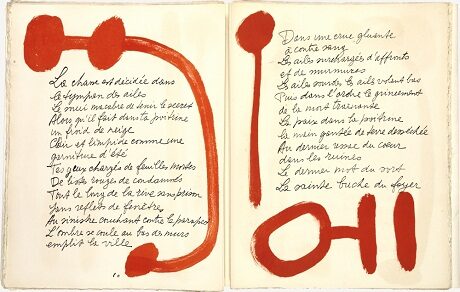 La chance est décidée dans
le tympan des ailes
Le souci macabre de tenir le secret
Alors qu'il fait dans ta poitrine
un froid de neige
Clair et limpide comme une
garniture d'été
Tes yeux chargés de feuilles mortes
De listes rouges de condamnés
Tout le long de la rive sans prison
Sans reflets de fenêtre
Au sinistre couchant contre le parapet
L'ombre se coule au bas des murs
emplit la ville
Dans une crue gluante
à contre sang
Les ailes surchargées d'affronts
et de murmures
Les ailes sourdes les ailes volant bas
Puis dans l'ordre le grincement
de la mort
La paix dans la poitrine
La main gantée de terre desséchée
Au dernier assaut du coeur
dans les ruines
Le dernier mot du sort
La sainte buche du foyer